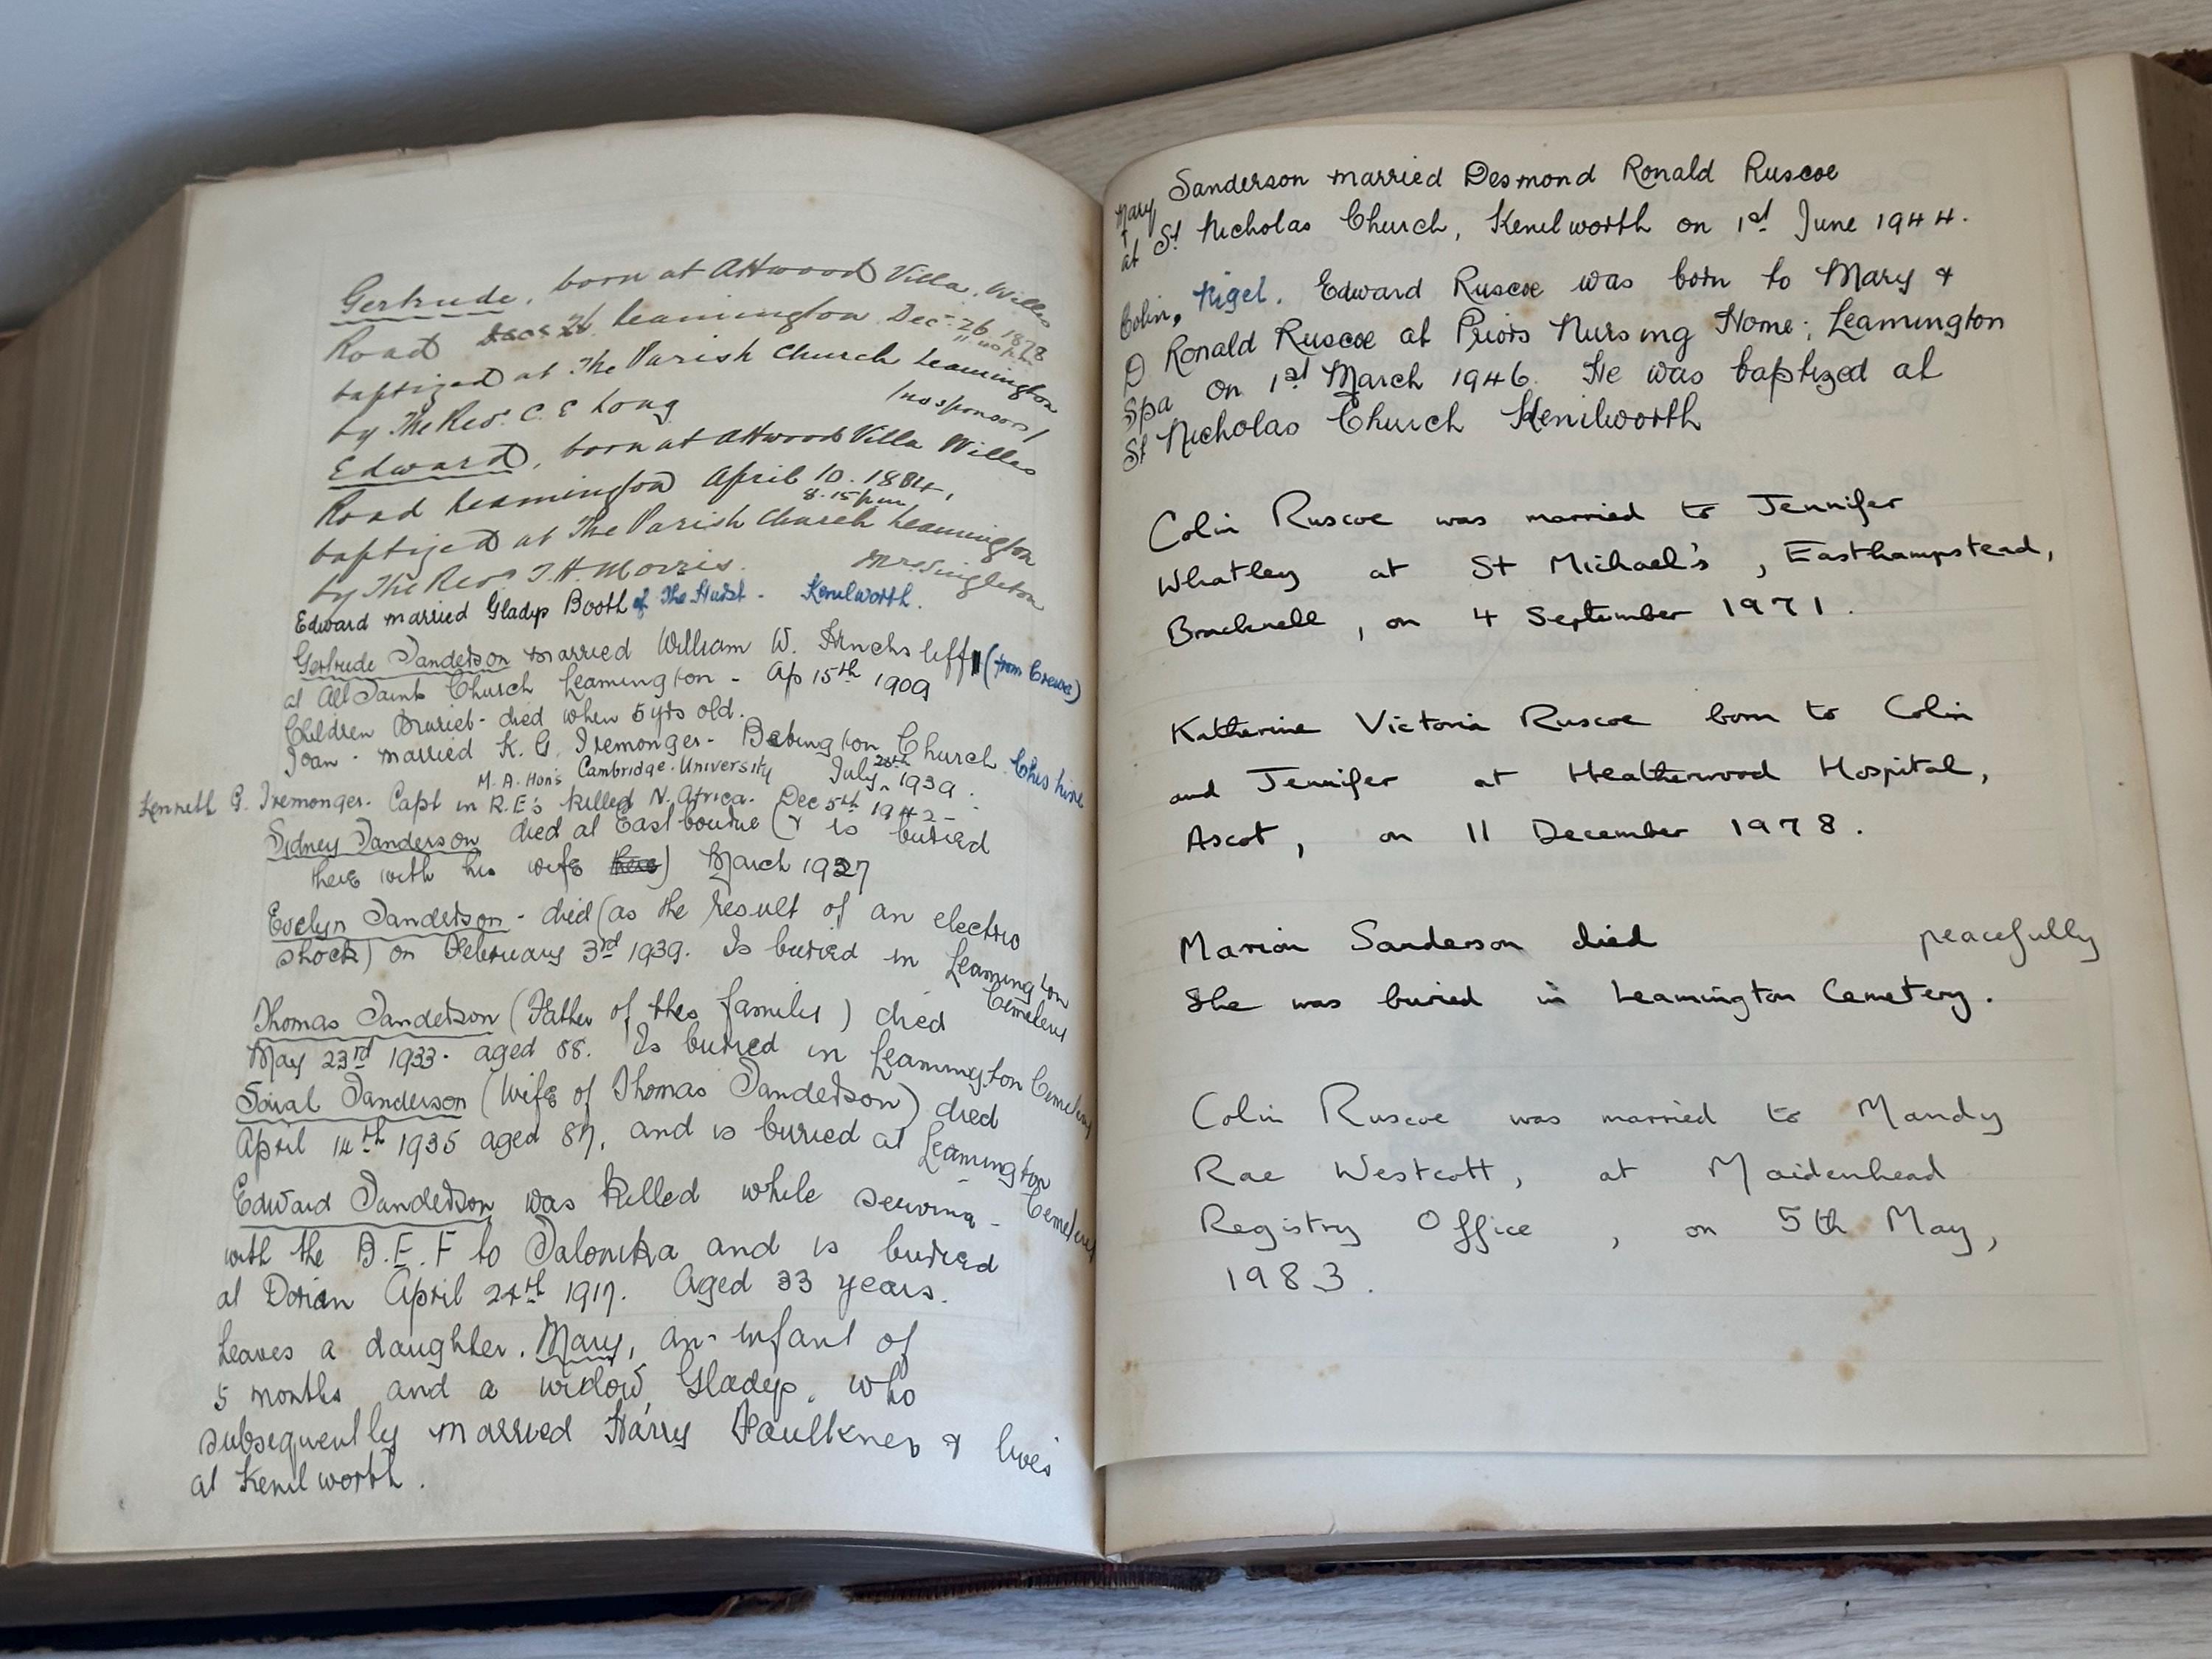 Gertrude, born at Attwood Villa, Willes
Road Leamington Dec. 26 1878
baptized at The Parish Church Leamington
by The Rev. C. E Long (no sponsors)
Edward, born at Attwood Villa Willes
Road Leamington April 10. 1884,
8.15 pm
baptized at The Parish Church Leamington
by The Revd J. H. Morris. Mrs Singleton
Edward married Gladys Booth of The Hurst - Kenilworth.
Gertrude Sanderson married William W. (from Crewe)
at All Saints Church Leamington - Ap 15th 1909
Children - died when 5 yrs old.
Joan - married K. G. Iremonger - Bebington Church. Cheshire
M. A. Hon's Cambridge University July 1939.
Kenneth G. Iremonger. Capt in R.E's killed N. Africa. Dec 5th 1942 -
Sydney Sanderson died at Eastbourne (& is buried
there with his wife here) March 1927
Evelyn Sanderson - died (as the result of an electric
shock) on February 3rd 1939. Is buried in Leamington
Cemetery
Thomas Sanderson (Father of this family) died
May 23rd 1933. aged 88. Is buried in Leamington Cemetery
Sarah Sanderson (Wife of Thomas Sanderson) died
April 14th 1935 aged 87, and is buried at Leamington
Cemetery
Edward Sanderson was killed while serving -
with the B.E.F to Salonika and is buried
at Dorian April 24th 1917. Aged 33 years.
Leaves a daughter. Mary, an infant of
5 months and a widow, Gladys, who
subsequently married Harry Faulkner & lives
at Kenilworth.
Mary Sanderson married Desmond Ronald Ruscoe
at St Nicholas Church, Kenilworth on 1st June 1944.
Colin, Nigel. Edward Ruscoe was born to Mary &
D Ronald Ruscoe at Priors Nursing Home; Leamington
Spa on 1st March 1946. He was baptized at
St Nicholas Church Kenilworth
Colin Ruscoe was married to Jennifer
Whatley at St Michael's, Easthampstead,
Bracknell, on 4 September 1971.
Katherine Victoria Ruscoe born to Colin
and Jennifer at Heatherwood Hospital,
Ascot, on 11 December 1978.
Marion Sanderson died peacefully
She was buried in Leamington Cemetery.
Colin Ruscoe was married to Mandy
Rae Westcott, at Maidenhead
Registry Office, on 5th May,
1983.